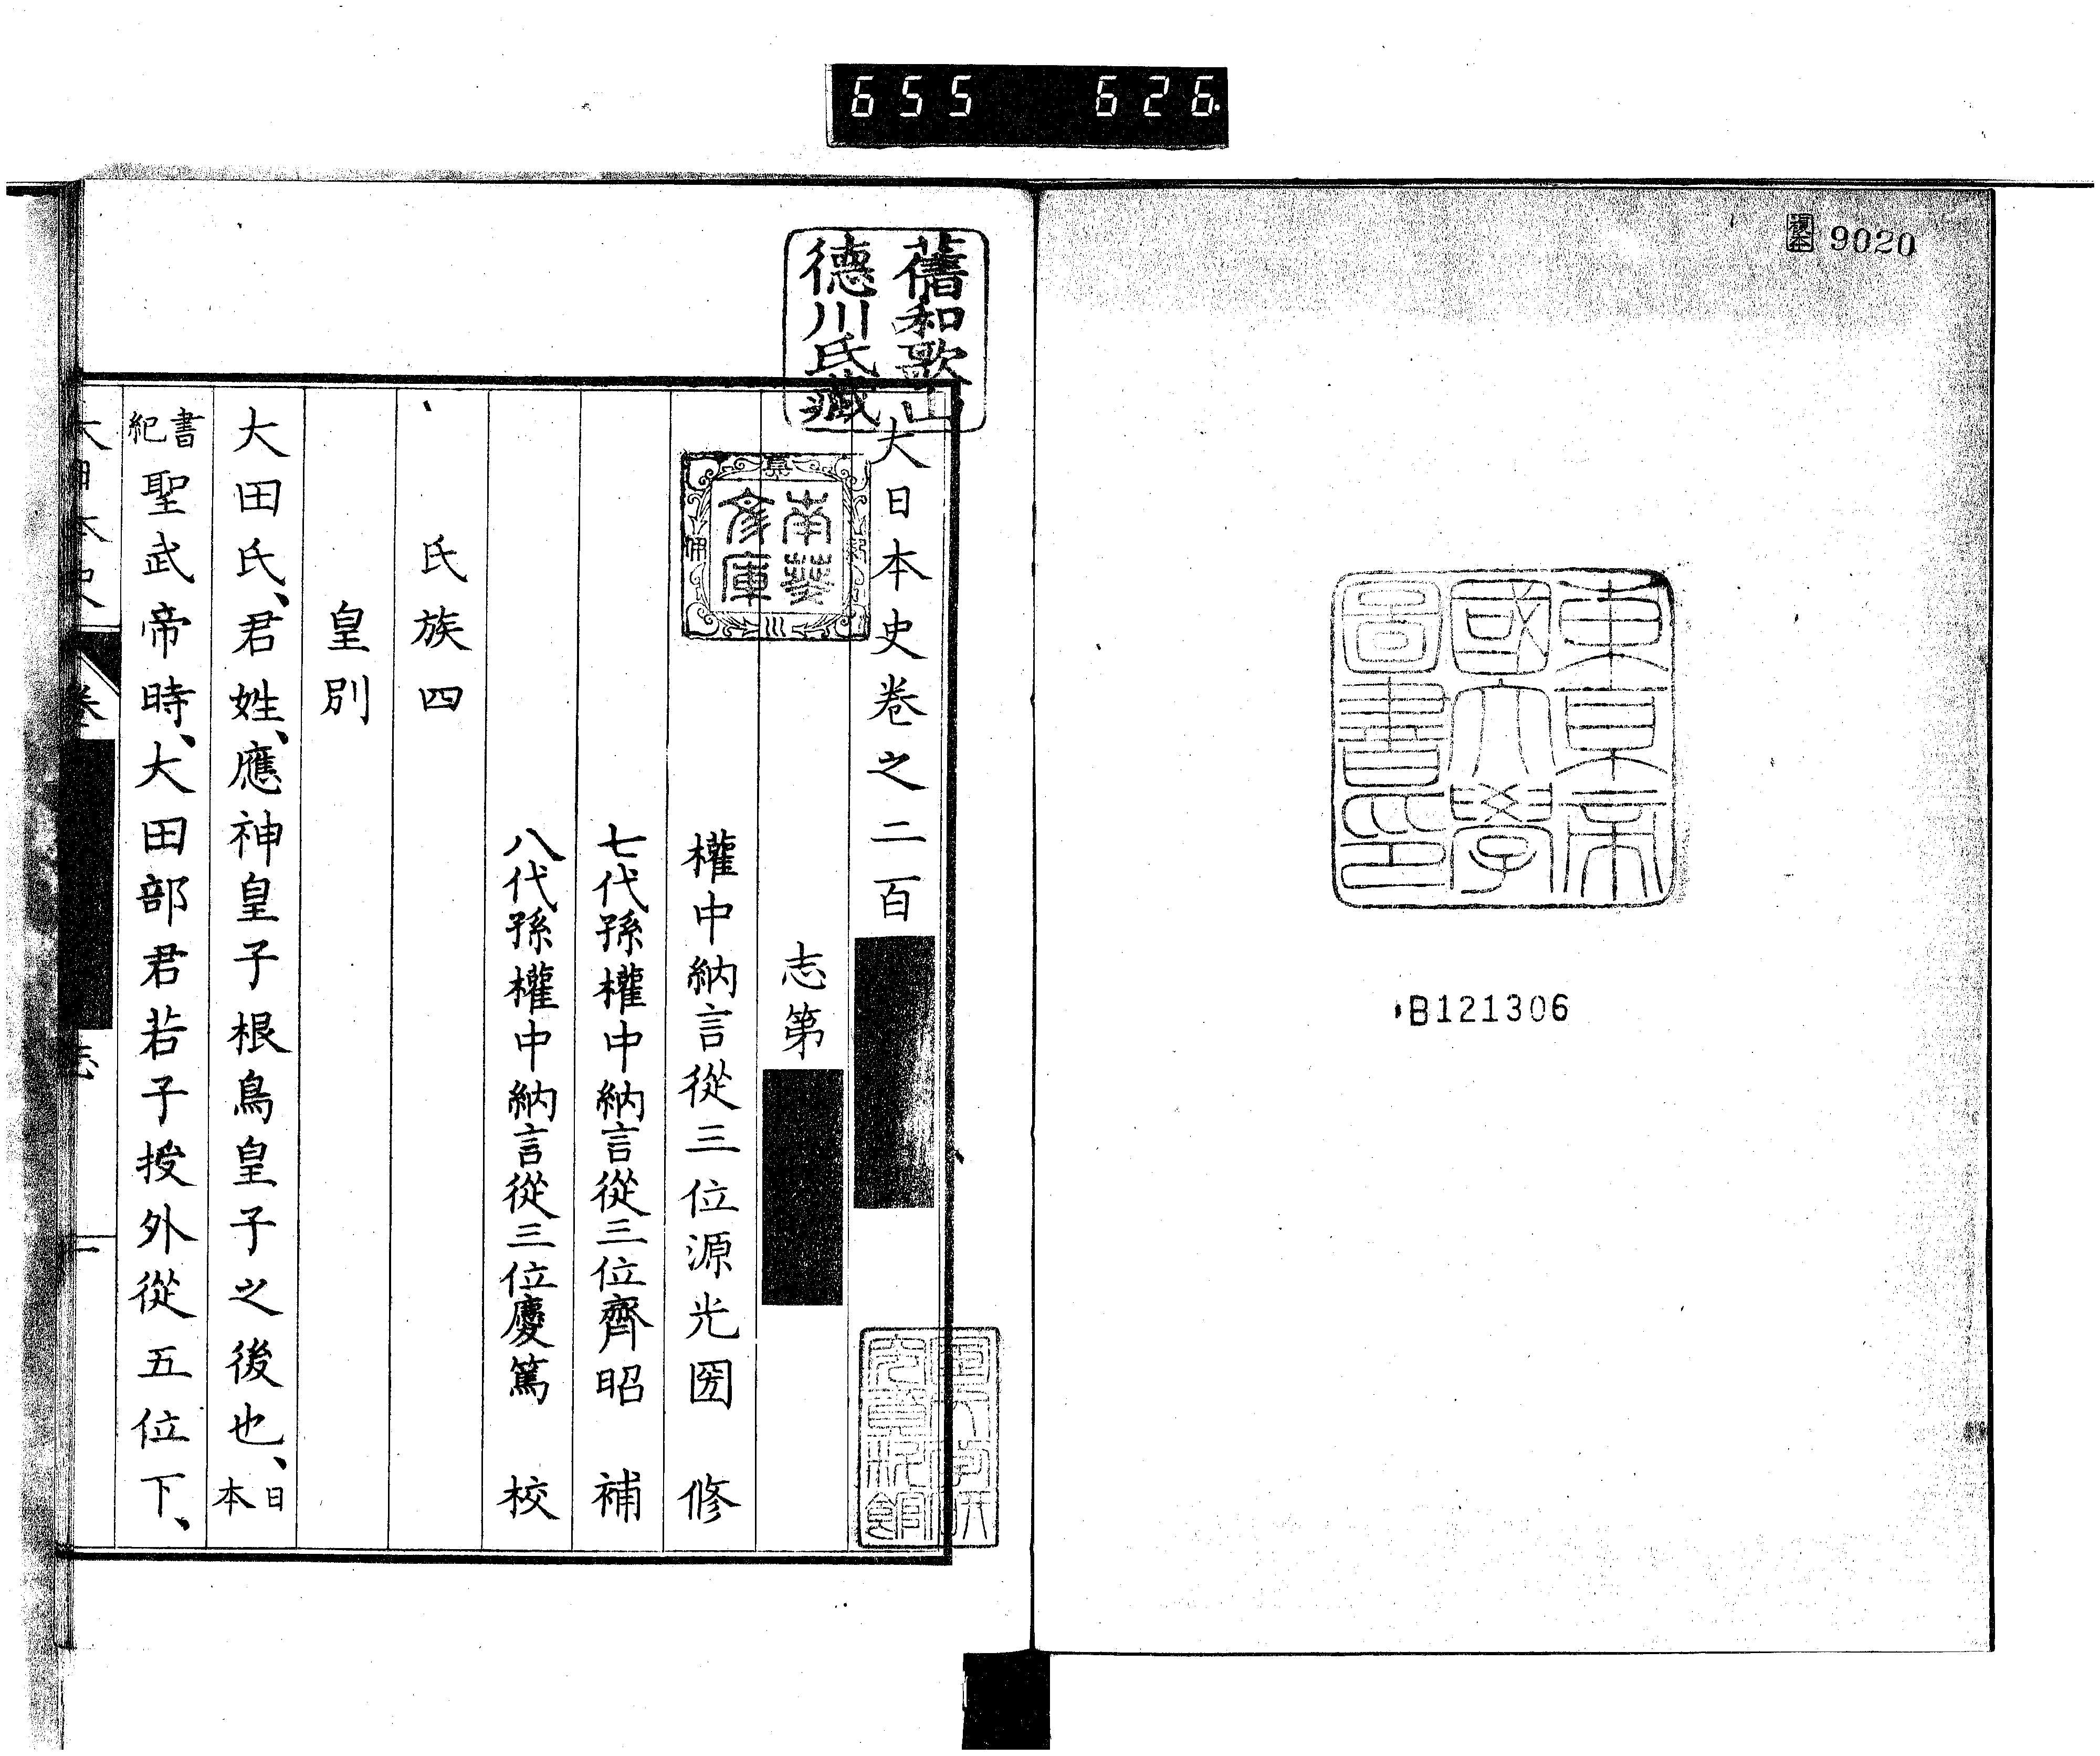 655 626
複本 9020
東京帝
國大學
圖書印
B121306
舊和歌山
德川氏藏
南葵
文庫
大日本史卷之二百
志第
權中納言從三位源光圀 修
七代孫權中納言從三位齊昭 補
八代孫權中納言從三位慶篤 校
氏族四
皇別
大田氏、君姓、應神皇子根鳥皇子之後也、日本
書紀聖武帝時、大田部君若子授外從五位下、
大日本史
卷
志
一